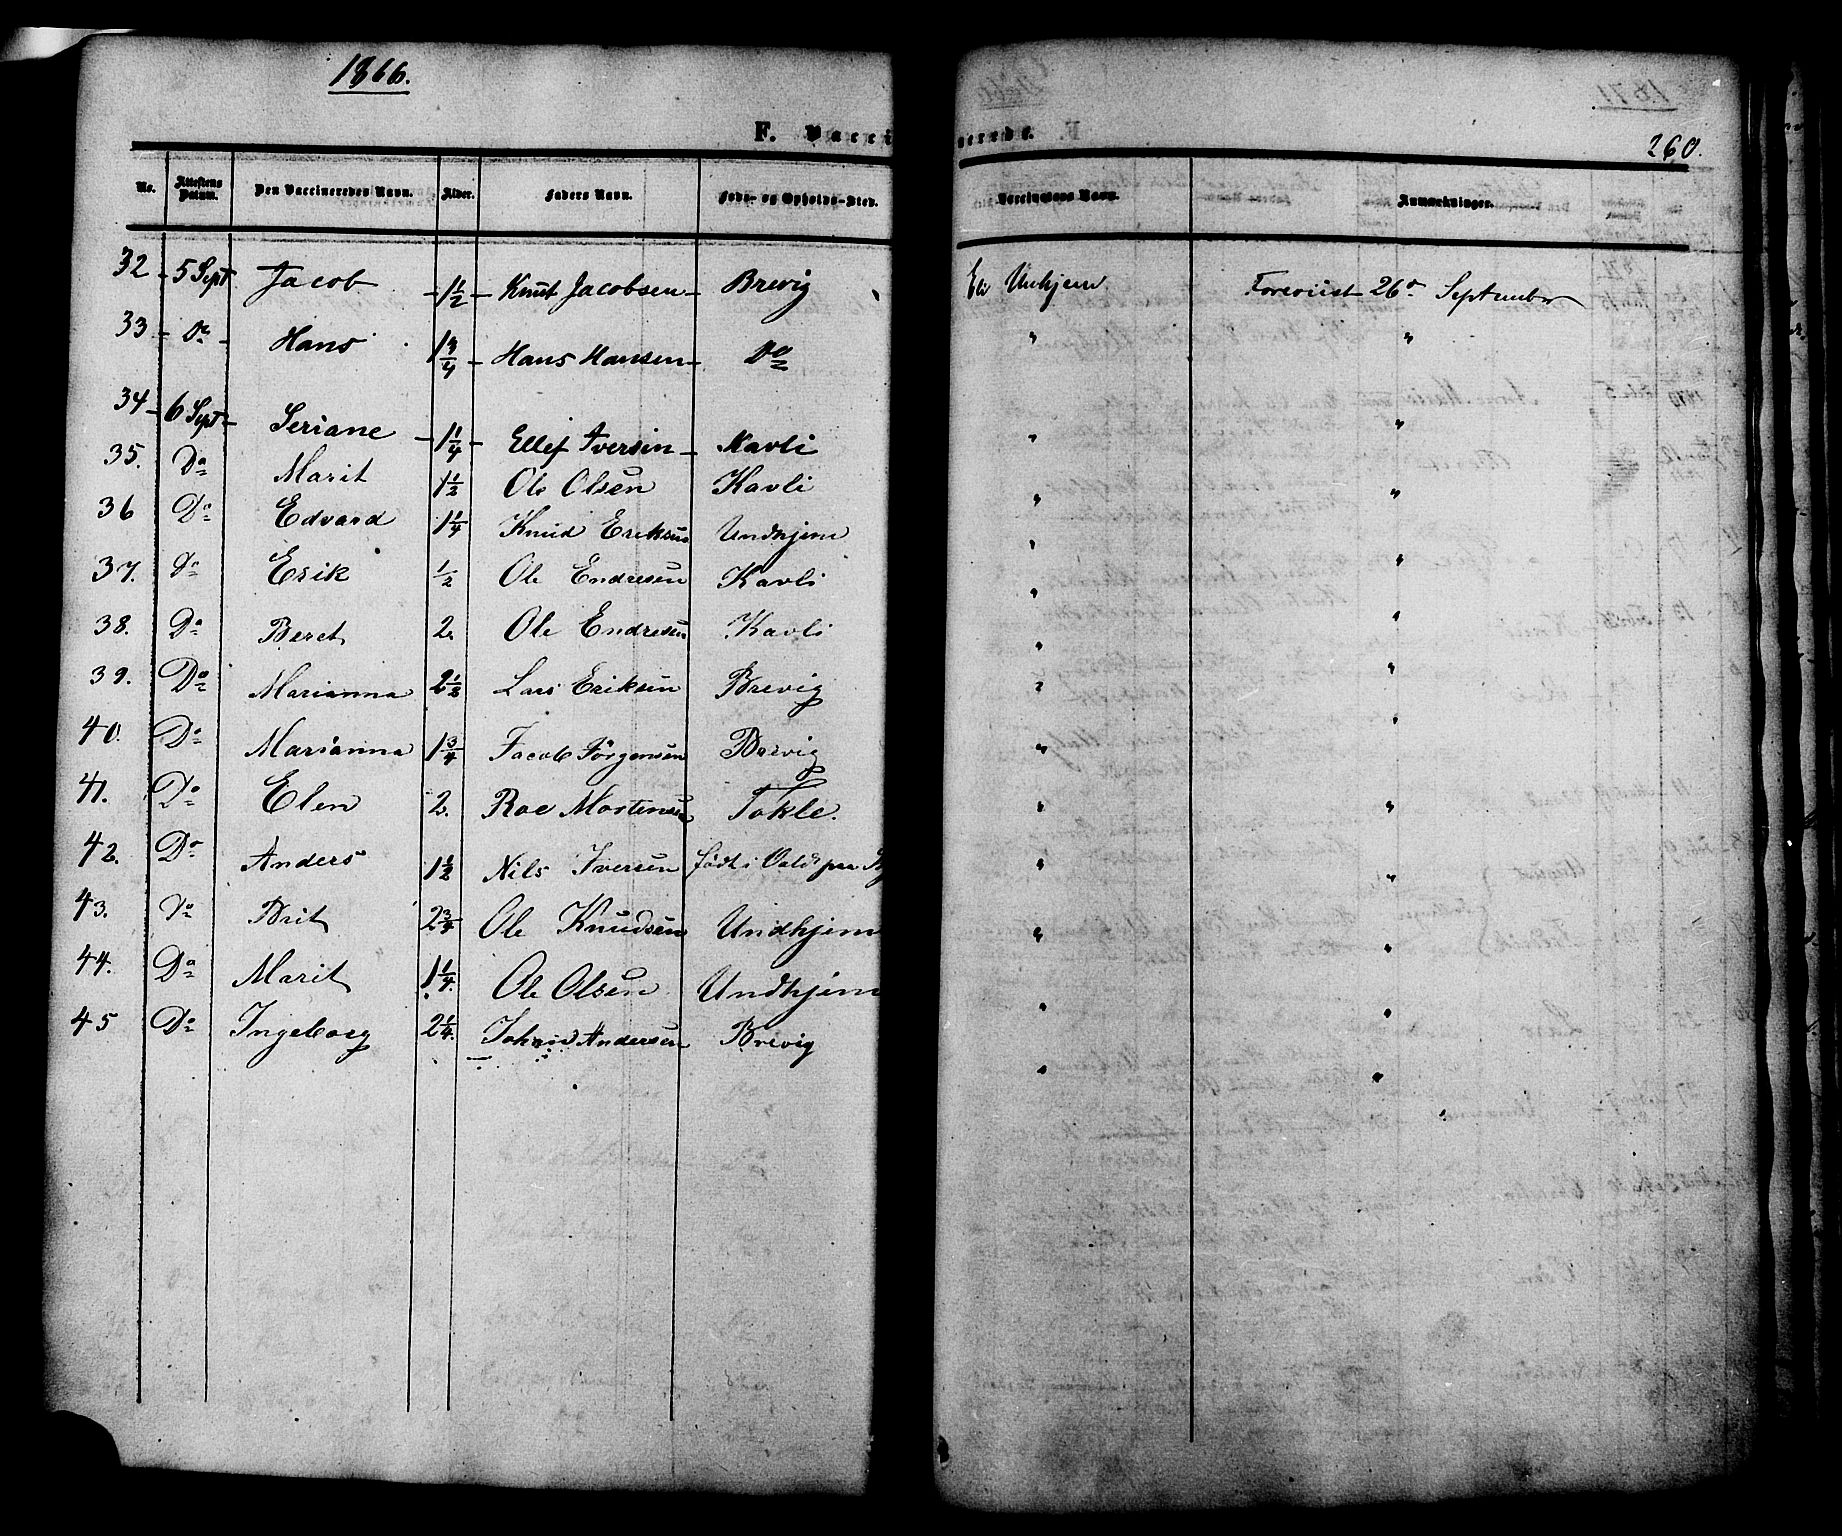 1866.
F. Vaccinerede.
260.
No. Attestens Datum. Den Vaccineredes Navn. Alder. Faders Navn. Føde- og Opholds-Sted. Vaccinators Navn. Anmærkninger.
32 - 5 Sept Jacob - 1 1/2 - Knut Jacobsen - Brevig Eli Unhjem Foreviist 26de September
33 - Do - Hans 1 3/4 - Hans Hansen - Do " "
34 - 6 Sept - Seriane - 1 1/4 - Ellef Iversen - Kavli " "
35. Do Marit 1 1/2 Ole Olsen Kavli " "
36 Do Edvard 1 1/4 Knud Eriksen Undhjem " "
37. Do Erik 1/2 Ole Endresen Kavli " "
38. Do Beret 2. Ole Endresen Kavli " "
39. Do Marianna 2 1/2 Lars Eriksen Brevig " "
40. Do Marianna 1 3/4 Jacob Jörgensen Brevig " "
41. Do Elen 2. Roe Mortensen Tokle. " "
42. Do Anders 1 1/2 Nils Iversen født i Vold paa " "
43. Do Brit 2 3/4 Ole Knudsen Undhjem " "
44. Do Marit 1 1/4. Ole Olsen Undhjem " "
45 Do Ingeborg 2 1/4. Johan Andersen Brevig " "